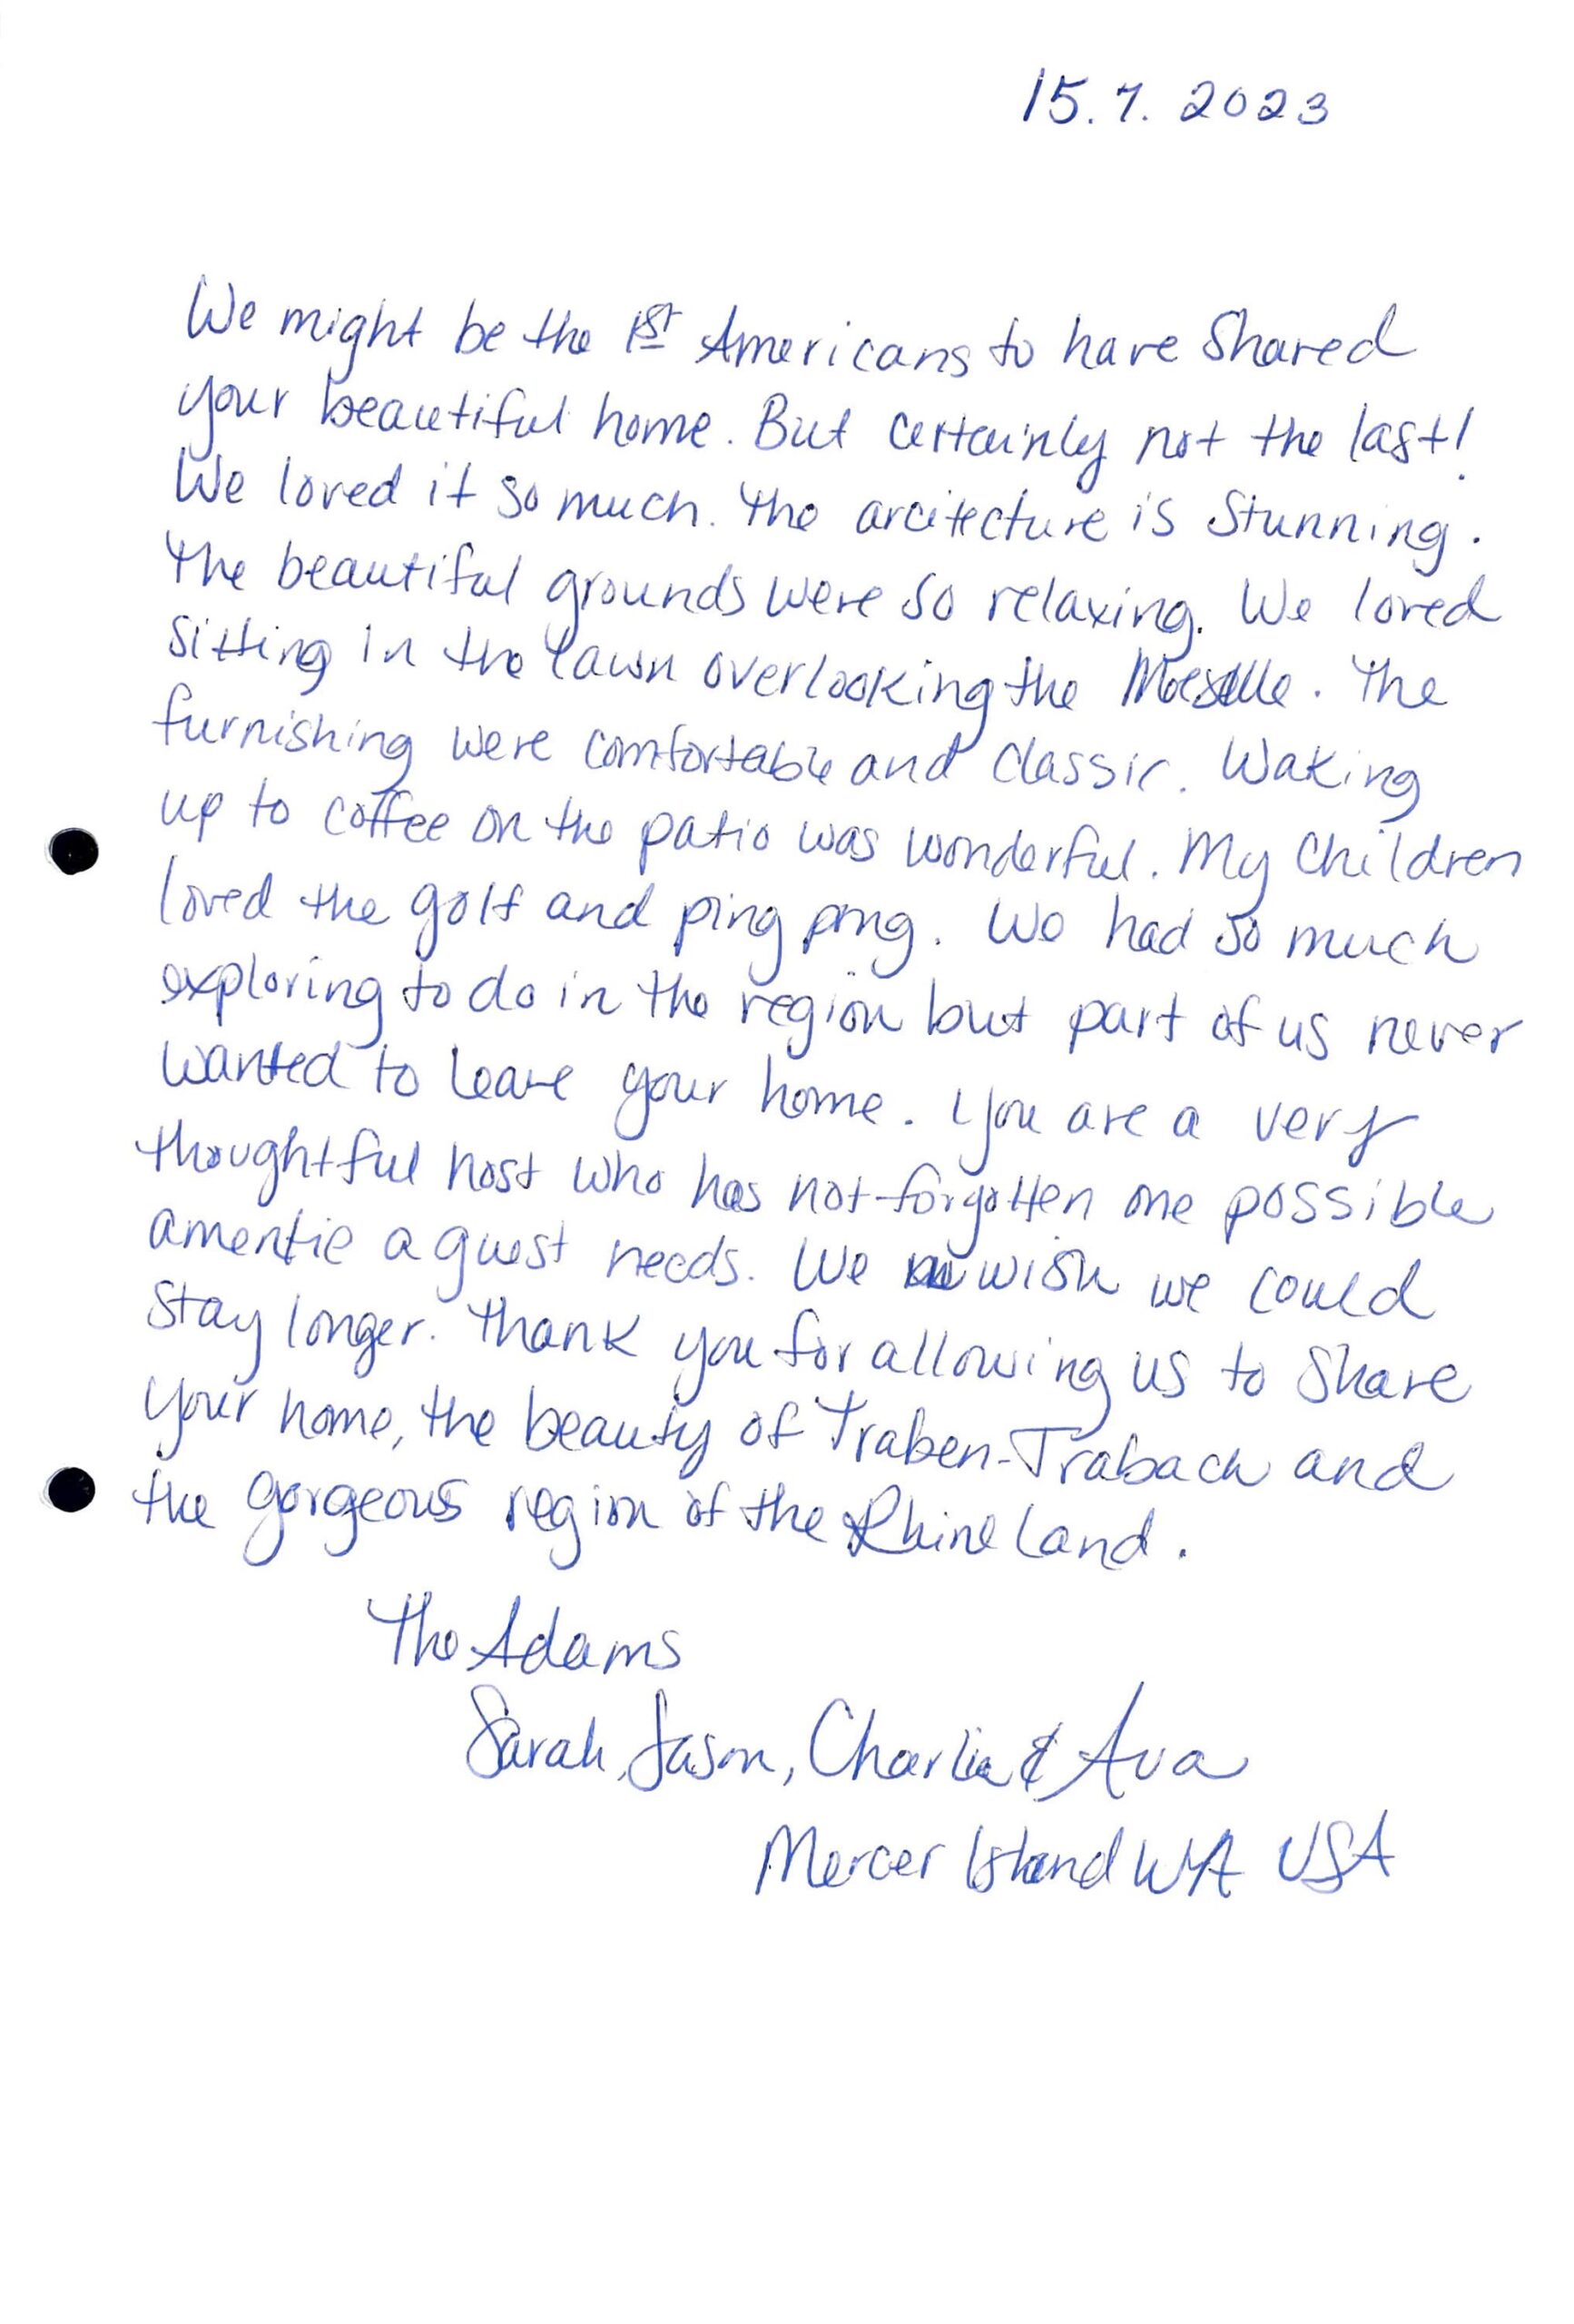 15.7.2023
We might be the 1st Americans to have shared
your beautiful home. But certainly not the last!
We loved it so much. The arcitecture is stunning.
The beautiful grounds were so relaxing. We loved
sitting in the lawn overlooking the Moeselle. The
furnishing were comfortable and classic. Waking
up to coffee on the patio was wonderful. My children
loved the golf and ping pong. We had so much
exploring to do in the region but part of us never
wanted to leave your home. You are a very
thoughtful host who has not forgotten one possible
amentie a guest needs. We wish we could
stay longer. Thank you for allowing us to share
your home, the beauty of Traben-Trabach and
the gorgeous region of the Rhineland.
The Adams
Sarah, Jason, Charlie & Ava
Mercer Island WA USA